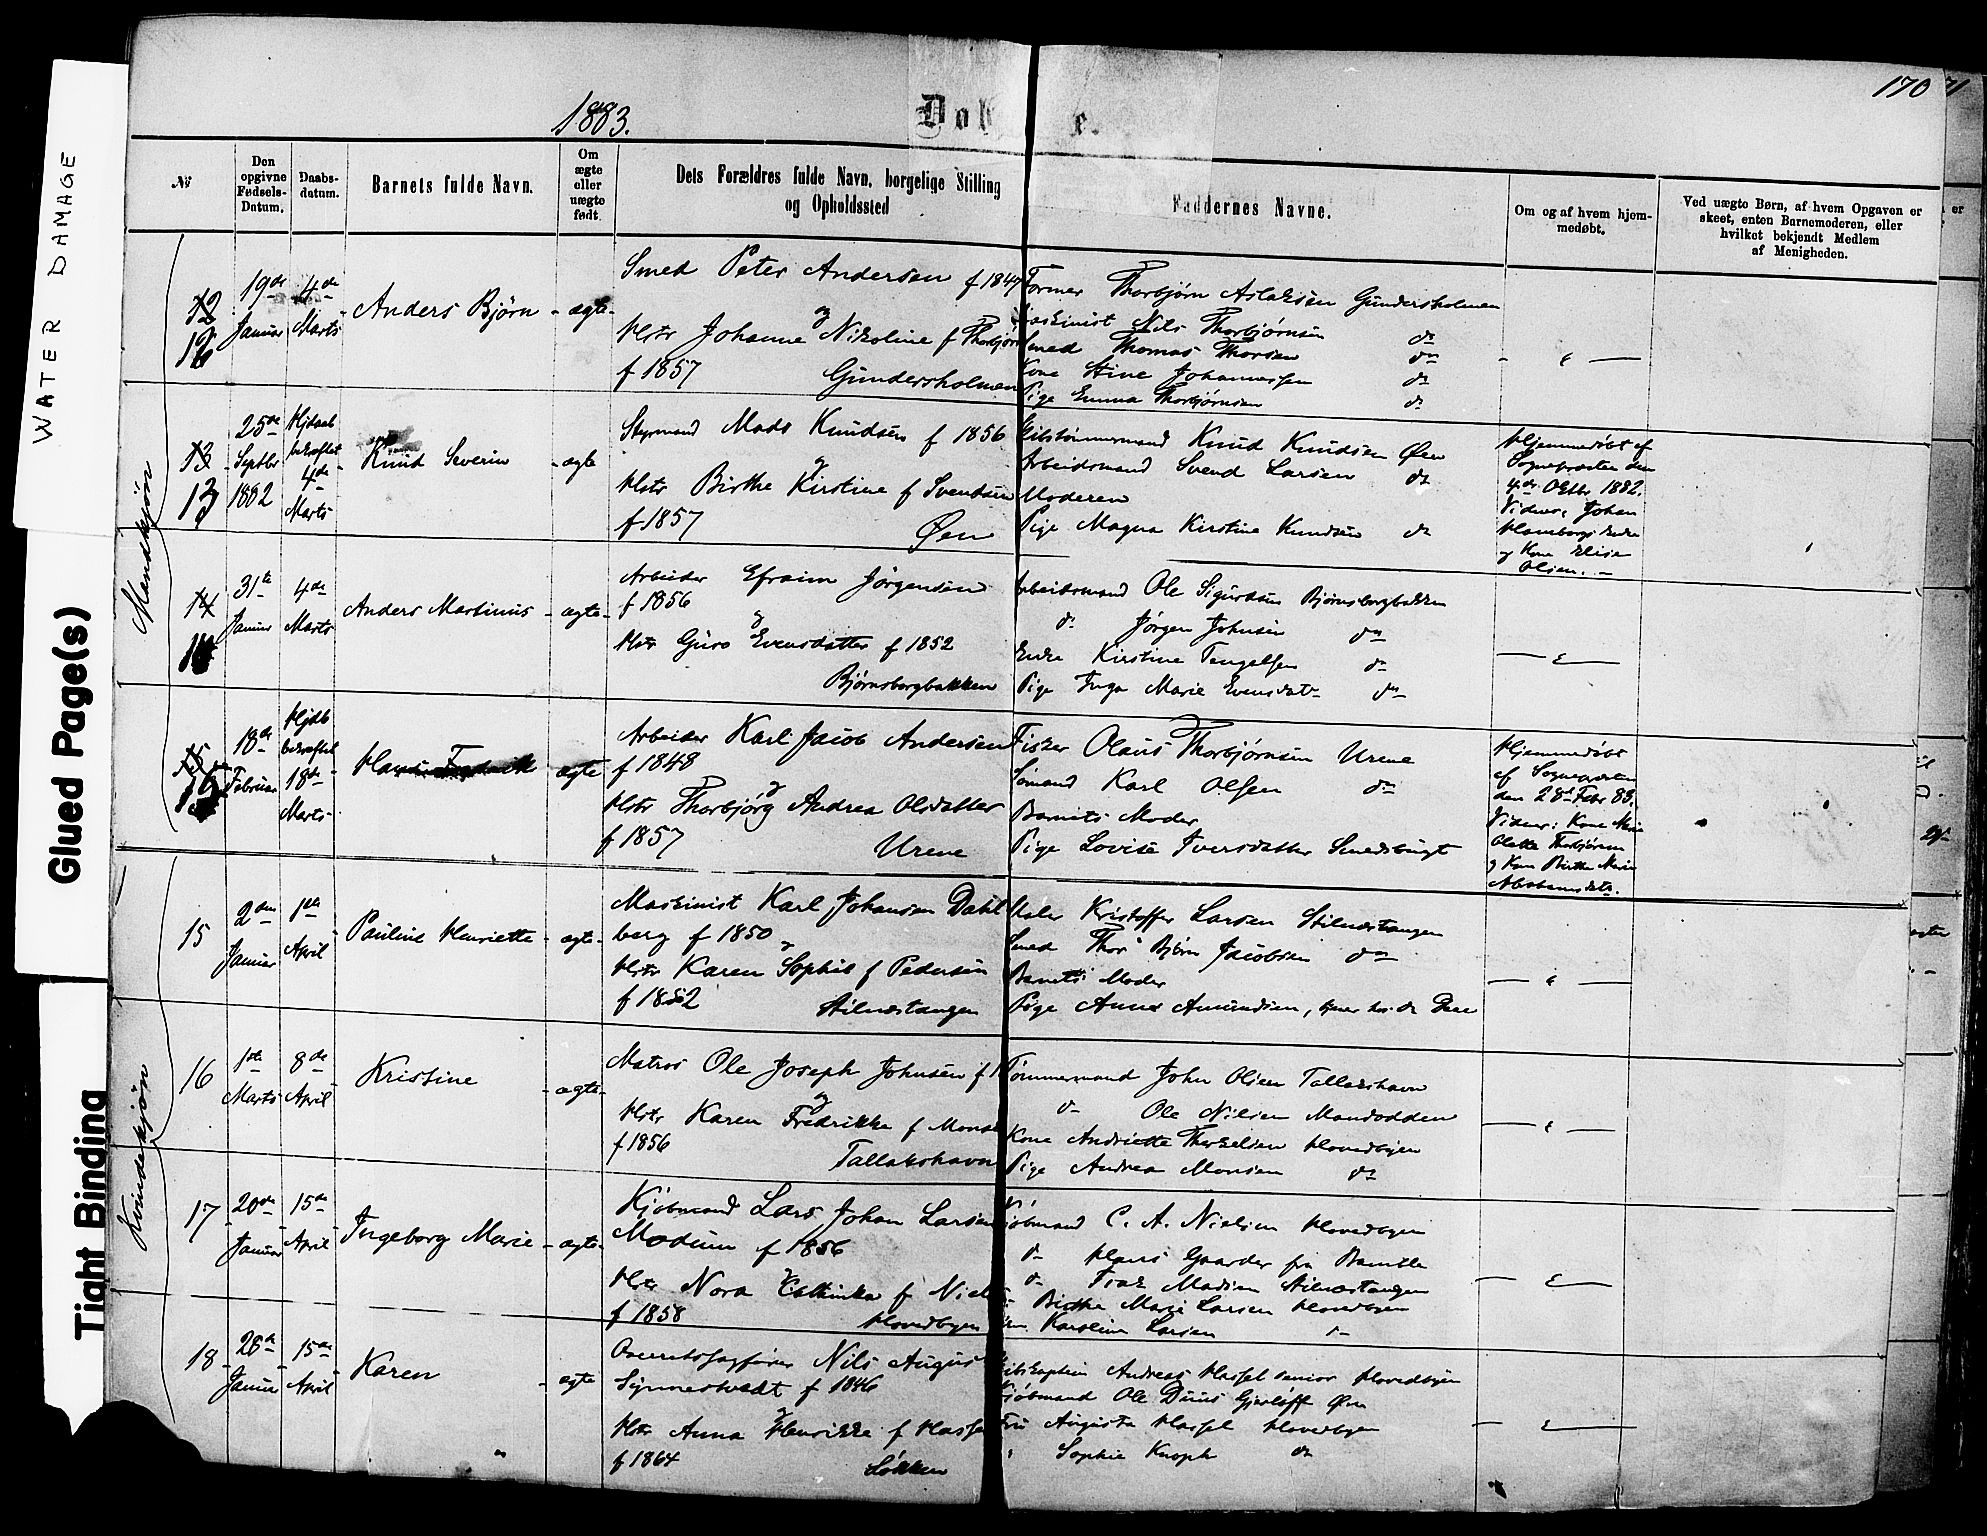 WATER DAMAGE
Glued Page(s)
Tight Binding
1883.
Døb e.
170
71
№
Den opgivne Fødsels-Datum.
Daabs-datum.
Barnets fulde Navn.
Om ægte eller uægte født.
Dets Forældres fulde Navn, borgelige Stilling og Opholdssted
Faddernes Navne.
Om og af hvem hjem-medøbt.
Ved uægte Børn, af hvem Opgaven er skeet, enten Barnemoderen, eller hvilket bekjendt Medlem af Menigheden.
Mandkjøn
12
12
19de Januar
4de Marts
Anders Bjørn
ægte
Smed Peter Andersen f 1847
og
Hstr Johanne Nikoline f Thorbjørn
f 1857 Gundersholmen
Former Thorbjørn Aslaksen Gundersholmen
Maskinist Nils Thorbjørnsen do
Smed Thomas Thorsen do
Kone Stine Johannessen do
Pige Emma Thorbjørnsen do
13
13
25de Septbr 1882
Hjdaab bekræftet 4de Marts
Knud Severin
ægte
Styrmand Mads Knudsen f 1856
og
Hstr Birthe Kirstine f Svendsen
f 1857 Øen
Skibstømmermand Knud Knudsen Øen
Arbeidsmand Svend Larsen do
Moderen
Pige Magna Kirstine Knudsen do
Hjemmedøbt af
Sognepresten den
4de Oktbr 1882.
Vidner, Johan
Enke
og Kone Elise
Olsen.
14
14
31te Januar
4de Marts
Anders Martinius
ægte
Arbeider Efraim Jørgensen
f 1856
og
Hstr Guro Evensdatter f 1852
Bjørnsborgbakken
Arbeidsmand Ole Sigurdsen Bjørnsborgbakken
do Jørgen Johnsen do
Enke Kirstine Tengelsen do
Pige Inga Marie Evensdatr do
15
18de Februar
Hjdb bekræftet 18de Marts
ægte
Arbeider Karl Jacob Andersen
f 1848
og
Hstr Thorbjørg Andrea Olsdatter
f 1857 Urene
Fisker Olaus Thorbjørnsen Urene
Sømand Karl Olsen do
Barnets Moder
Pige Lovise Iversdatter Smedsbugt
Hjemmedøbt
af Sognepresten
den 28de Febr 83.
Vidner: Kone Marie
Olette Thorbjørnsen
og Kone Birthe Marie
Abrahamsdatr.
Kvindekjøn
15
2den Januar
1ste April
Pauline Henriette
ægte
Maskinist Karl Johansen Dahl
berg f 1850
og
Hstr Karen Sophie f Pedersen
f 1852 Stilnestangen
Maler Kristoffer Larsen Stilnestangen
Smed Thor Bjørn Jacobsen do
Barnets Moder
Pige Anne Amundsen, tjener hos do
16
1ste Marts
8de April
Kristine
ægte
Matros Ole Joseph Johnsen f 1
og
Hstr Karen Fredrikke f Mons
f 1856 Tallakshavn
Tømmermand John Olsen Tallakshavn
do Ole Nilsen Mandodden
Kone Andriette Therkelsen Hovedbyen
Pige Andrea Monsen do
17
20de Januar
15de April
Ingeborg Marie
ægte
Kjøbmand Lars Johan Larsen
Modum f 1856
og
Hstr Nora Cathinka f Niel
f 1858 Hovedbyen
Kjøbmand C. A. Nielsen Hovedbyen
do Hans Gaarder fra Bamble
do Isak Madsen Stilnestangen
Birthe Marie Larsen Hovedbyen
Karoline Larsen do
18
28de Januar
15de April
Karen
ægte
Overretssagfører Nils August
Synnestvedt f 1846
og
Hstr Anna Henrikke f Hassel
f 1864 Løkken
Skibskaptein Andreas Hassel senior Hovedbyen
Kjøbmand Ole Duus Gjerløff Øen
Fru Augusta Hassel Hovedbyen
" Sophie Knoph do